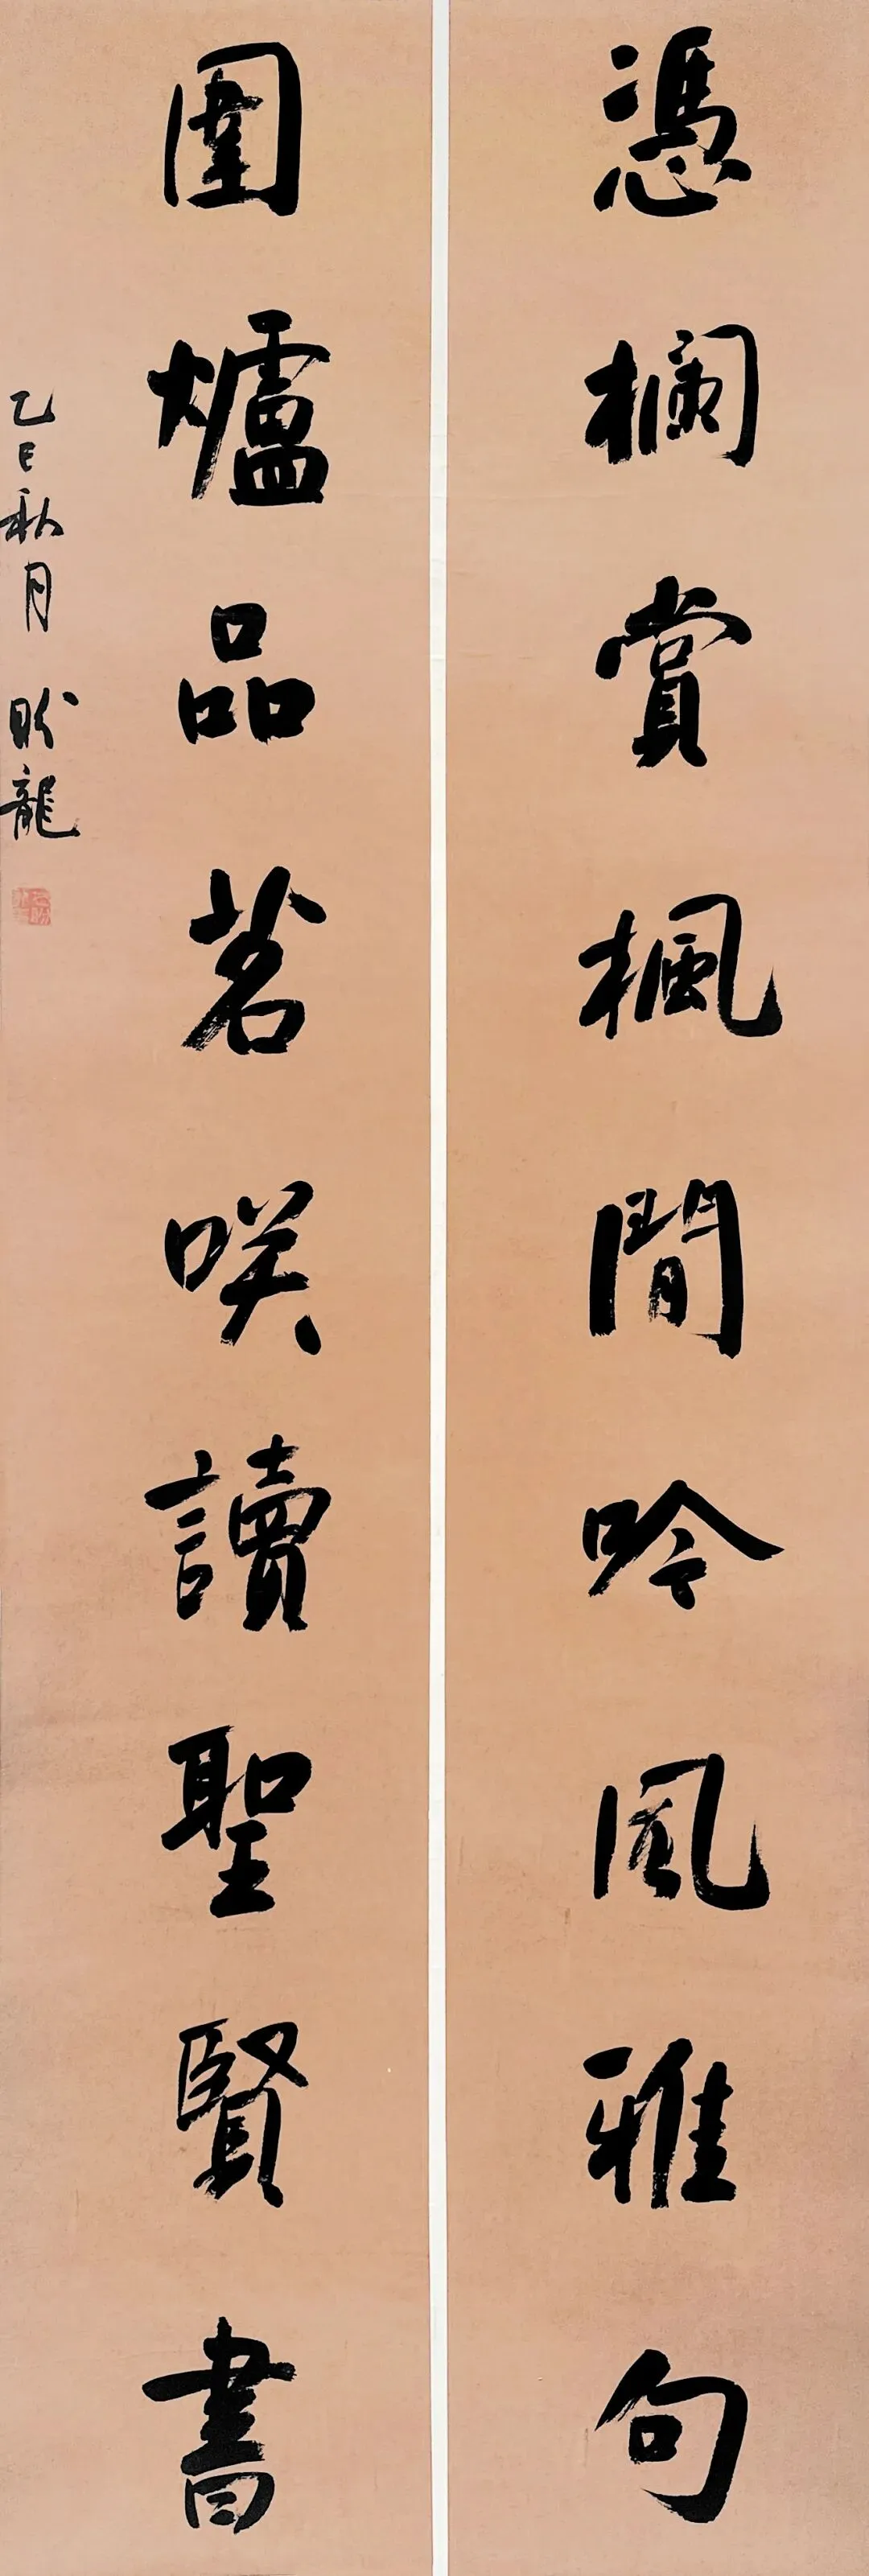 憑欄賞楓閒吟風雅句
圍爐品茗咲讀聖賢書
乙巳秋月 龍